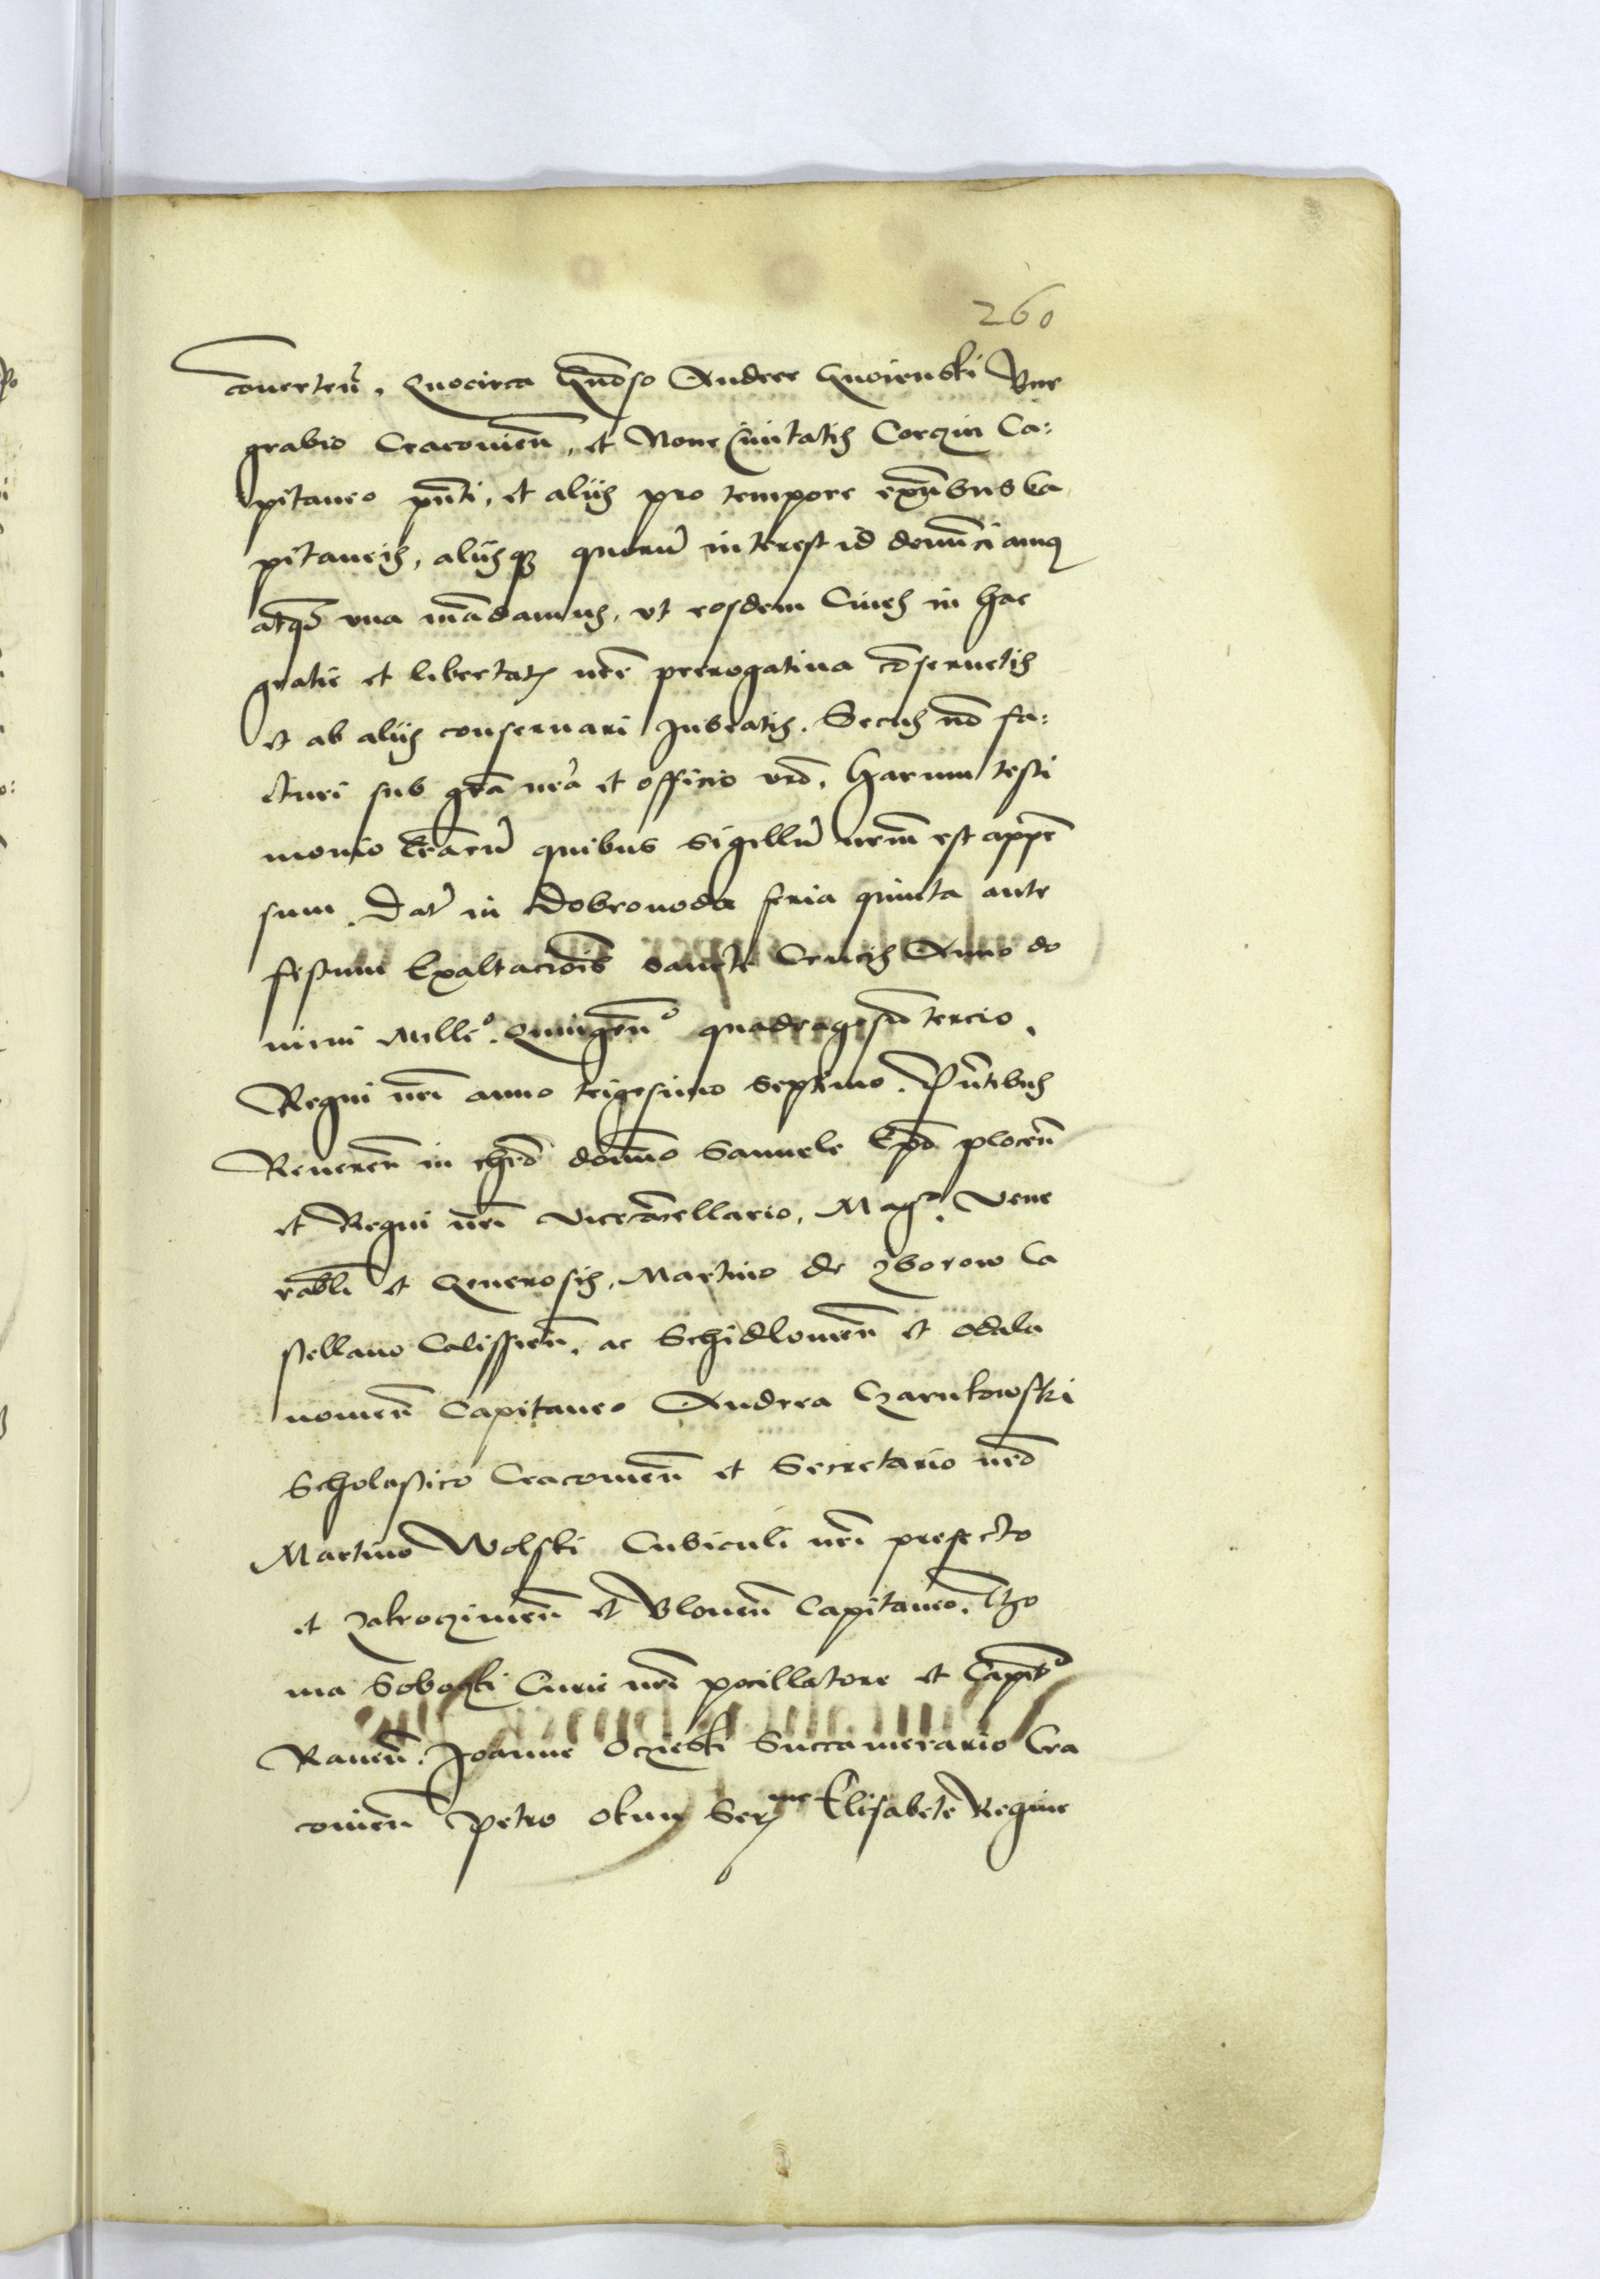 260
conerteñ. Quocirca Gnõso Andree Gnoienski Bur
grabio Cracouien̄, et None Ciuitatis Corczin Ca:
pitaneo pñti, et aliis pro tempore exñbus Ca
pitaneis, aliisq3 quorū interest id denunciamus
atq3 vna mādamus, vt eosdem Ciues in hac
gratie et libertatis nr̄e prerogatiua cōseruetis
et ab aliis conseruari Jubeatis. Secus nō fa:
cturi sub gr̄a nr̄a et officio vr̄o. Harum testi
monio lr̄arū quibus sigillū nr̄m est appē
sum. Dat' in Dobrouoda feria quinta ante
festum Exaltaciōis Sancte Crucis Anno do
mini Mille°. Quingen̄° quadragesīo tercio.
Regni nr̄i anno trigesimo septimo. Pñtibus
Reueren̄ in chr̄o domīno Samuele Ep̄o plocen̄
et Regni nr̄i Vicecācellario, Mag°. Vene
rabl̄i et Generosis, Martino de Zborow Ca
stellano Calissien̄. ac Schidlouien̄ et Odala
nouien̄ Capitaneo Andrea Czarnkowski
Scholastico Cracouien̄ et Secretario nr̄o
Martino Wolski Cubiculi nr̄i prefecto
et Zakroczimien̄ et Blonen̄ Capitaneo. Tho
ma Soboczki Curie nr̄i pocillatore et Capit°
Rauen̄. Joanne Oczieski Succamerario Cra
couien̄ Petro Okun Ser^me Elisabete Regine